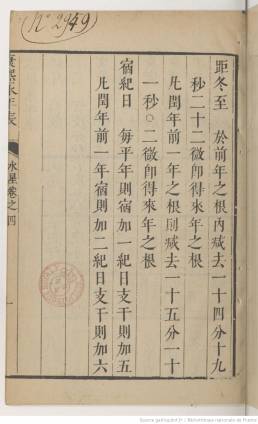 N° 2949
距冬至　於前年之根內減去一十四分十九
秒二十二微卽得來年之根
凡閏年前一年之根則減去一十五分一十
一秒〇二微卽得來年之根
宿紀日　每平年則宿加一紀日支干則加五
凡閏年前一年宿則加二紀日支干則加六
永年表
水星卷之四
一
Source gallica.bnf.fr / Bibliothèque nationale de France